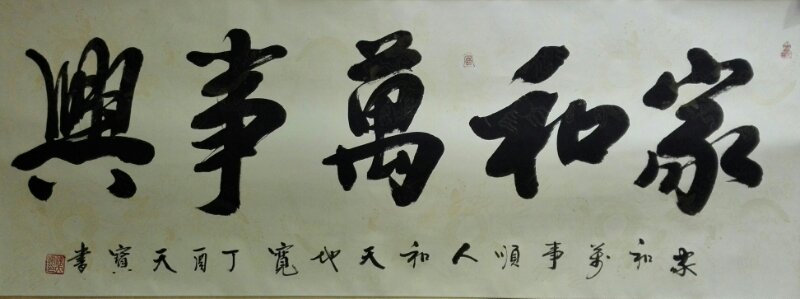 家和萬事興
家和萬事順人和天地寬丁酉天寶書